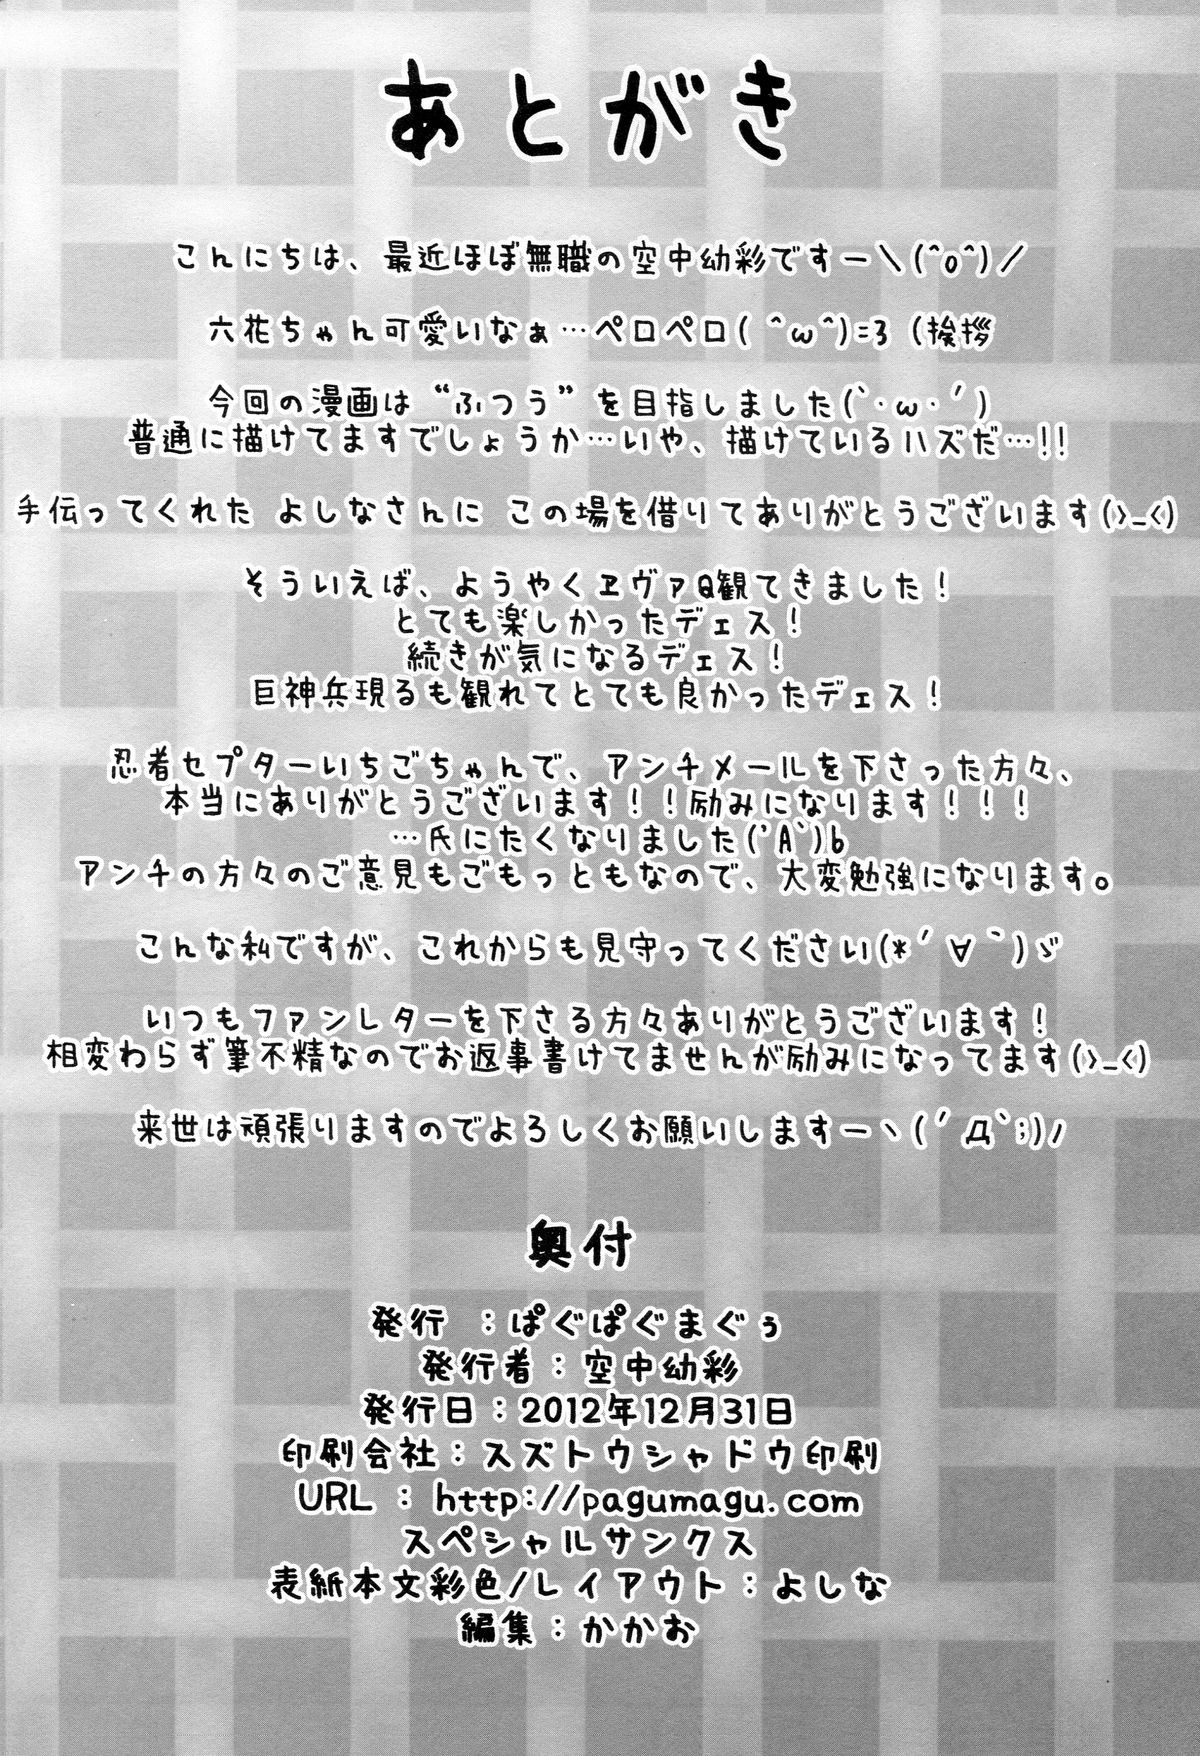 あとがき
こんにちは、最近ほぼ無職の空中幼彩ですー＼(^o^)／
六花ちゃん可愛いなぁ…ペロペロ( ^ω^)ﾆ3 (挨拶
今回の漫画は“ふつう”を目指しました(｀・ω・´)
普通に描けてますでしょうか…いや、描けているハズだ…!!
手伝ってくれた よしなさんに この場を借りてありがとうございます(>_<)
そういえば、ようやくヱヴァQ観てきました!
とても楽しかったデェス!
続きが気になるデェス!
巨神兵現るも観れてとても良かったデェス!
忍者セプターいちごちゃんで、アンチメールを下さった方々、
本当にありがとうございます!!励みになります!!!
…氏にたくなりました('A`)b
アンチの方々のご意見もごもっともなので、大変勉強になります。
こんな私ですが、これからも見守ってください(*´∀｀)ゞ
いつもファンレターを下さる方々ありがとうございます!
相変わらず筆不精なのでお返事書けてませんが励みになってます(>_<)
来世は頑張りますのでよろしくお願いしますーヽ(´Д｀;)ﾉ
奥付
発行 :ぱぐぱぐまぐぅ
発行者:空中幼彩
発行日:2012年12月31日
印刷会社:スズトウシャドウ印刷
URL : http://pagumagu.com
スペシャルサンクス
表紙本文彩色/レイアウト:よしな
編集:かかお